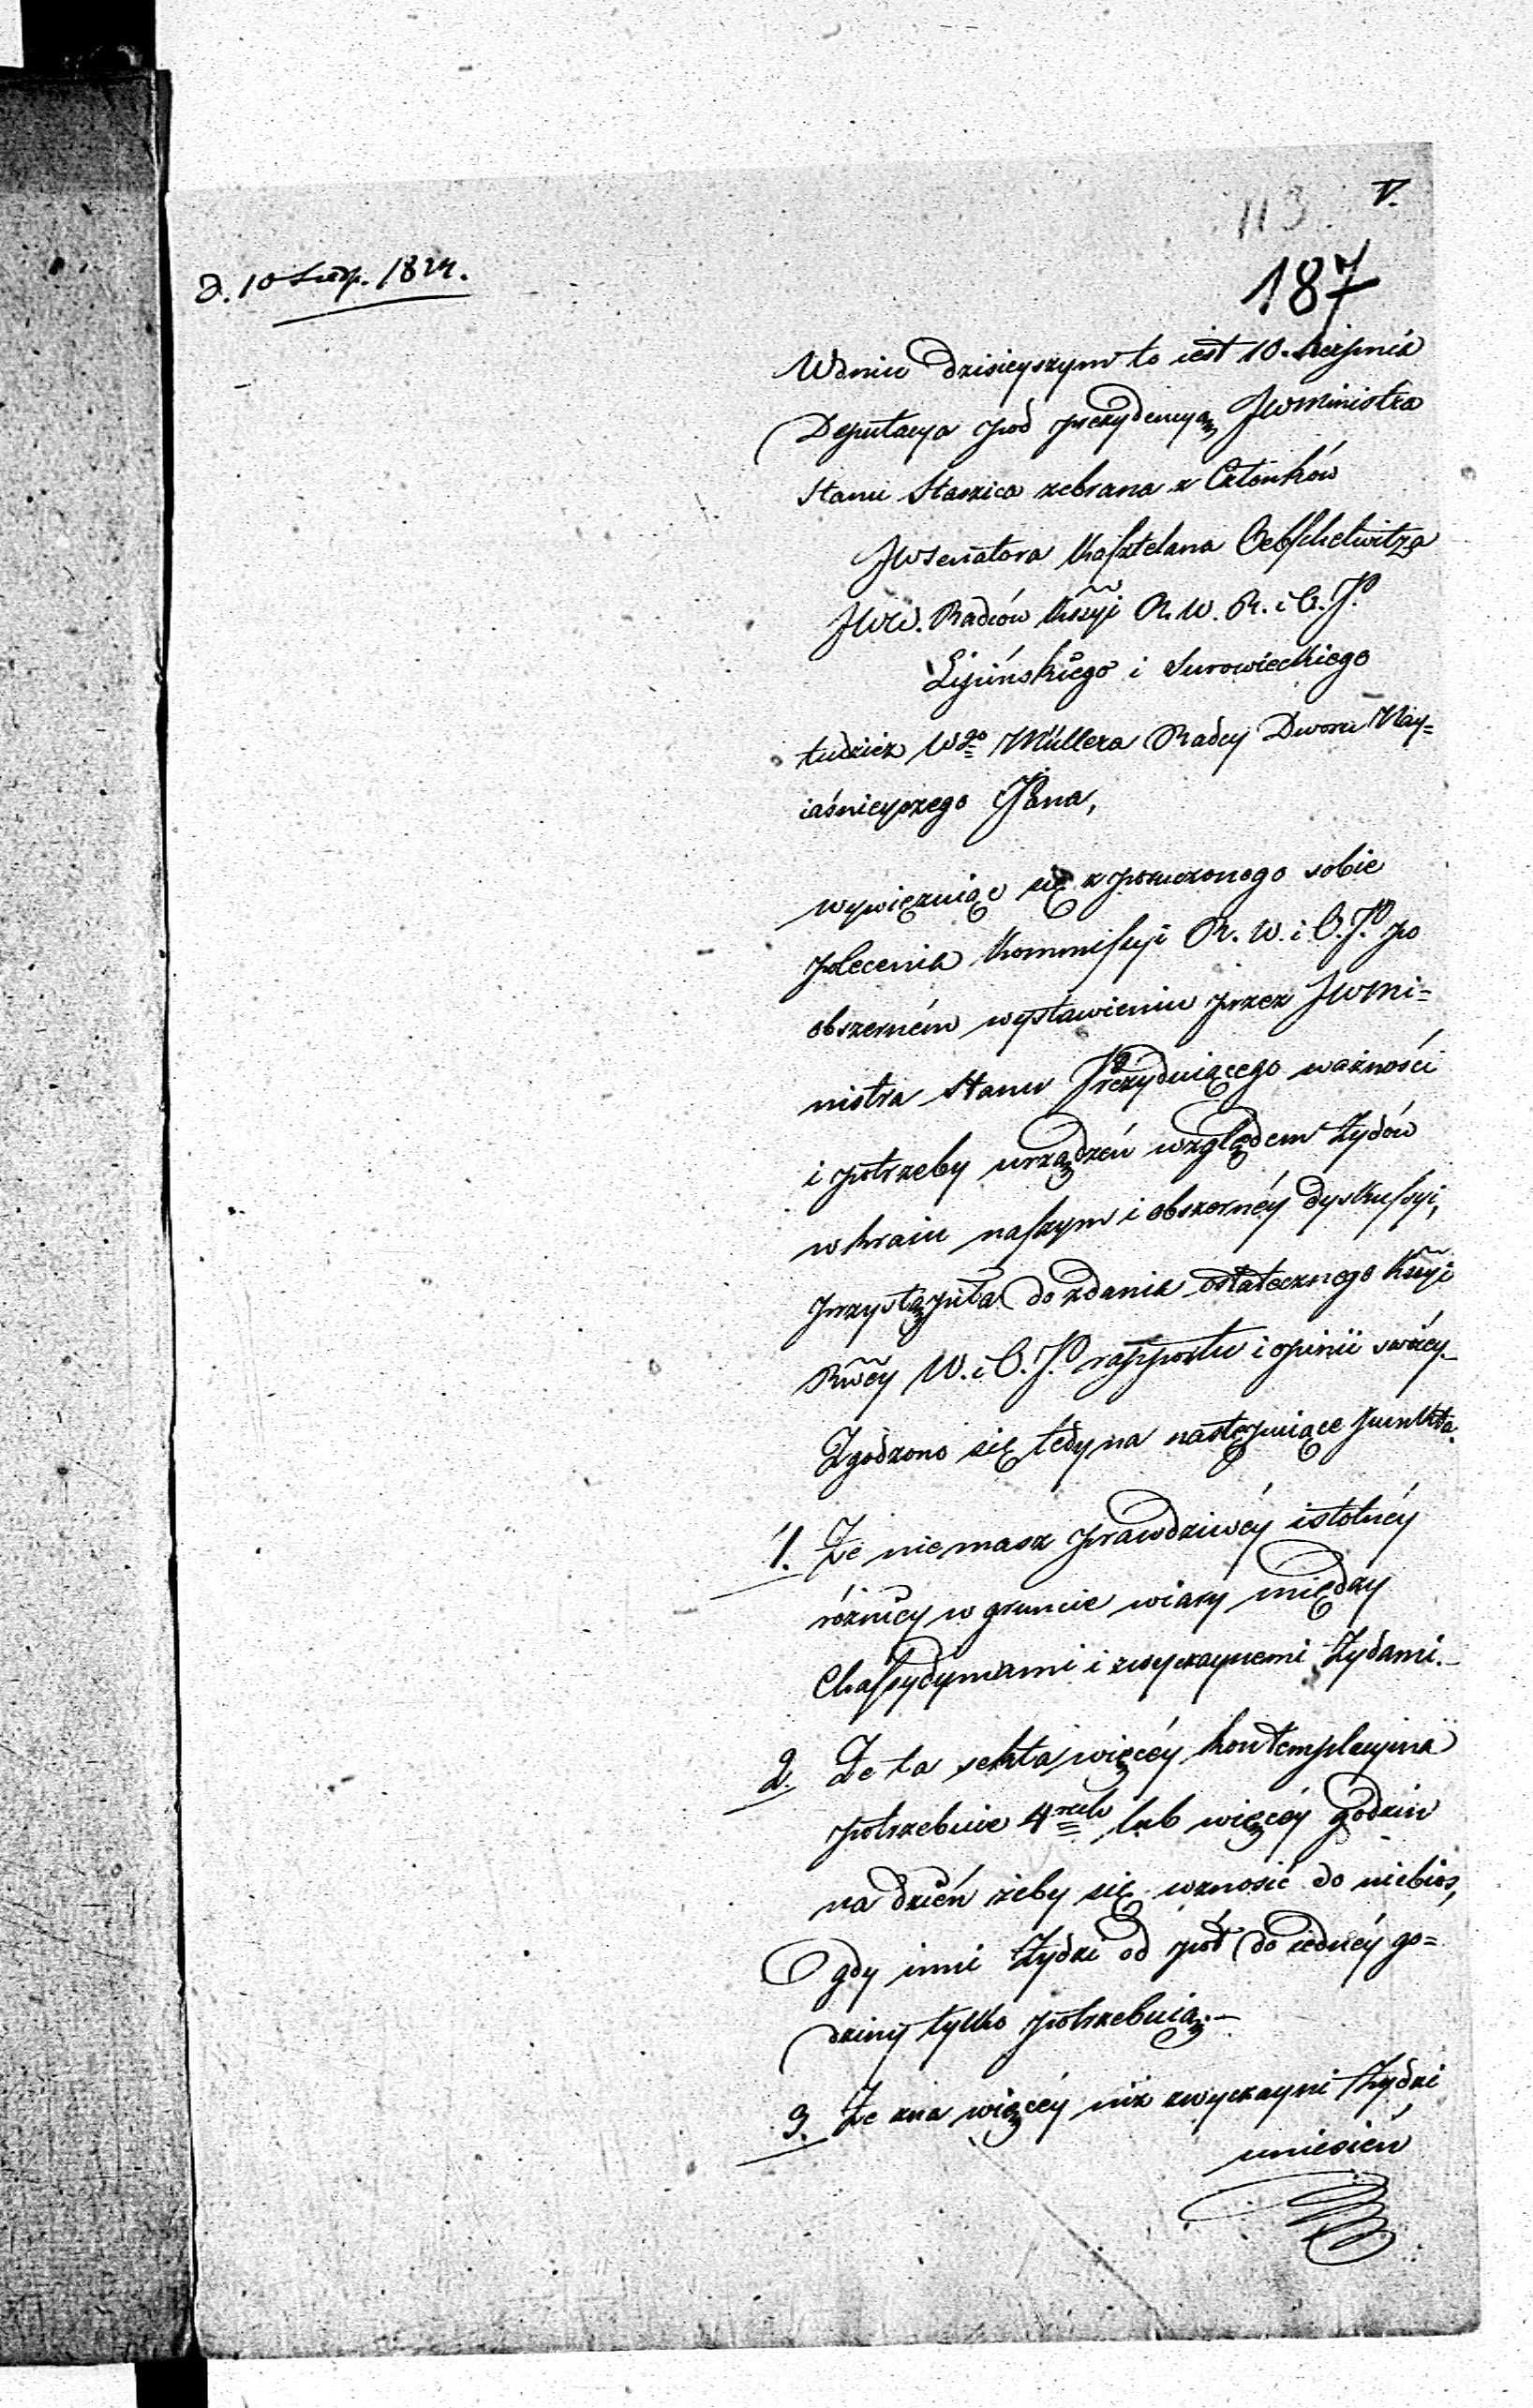 V.
113.
187
d. 10 Sierp. 1824.
W dniu dzisieyszym to iest 10. Sierpnia
Deputacya pod prezydencyą JW Ministra
Stanu Staszica zebrana z Członków
JW Senatora Kasztelana
JWW. Radców Kssyi R. W. R. i O. P.
Lipińskiego i Surowieckiego
tudzież Wgo Müllera Radcy Dworu Nay=
iaśnieyszego Pana,
wywięzuiąc się z poruczonego sobie
polecenia Kommissyi R. W. i O. P. po
obszerném wystawieniu przez JW Mi=
nistra Stanu Prezyduiącego ważności
i potrzeby urządzeń względem Żydów
w kraiu naszym i obszernéy dyskussyi,
przystąpiła do zdania ostatecznego Kssyi
Rwéy W. i O. P. rapportu i opinii swéy.
Zgodzono się tedy na następuiące punkta.
1. Że niemasz prawdziwéy istotnéy
różnicy w gruncie wiary między
Chassydymami i zwyczaynemi Żydami.
2. Że ta sekta więcéy kontemplacyina
potrzebuie 4rech lub więcéy godzin
na dzień żeby się wznosić do niebios,
gdy inni Żydzi od pół do iednéy go=
dziny tylko potrzebuią.
3. Że zna więcéy niż zwyczayni Żydzi
uniesień